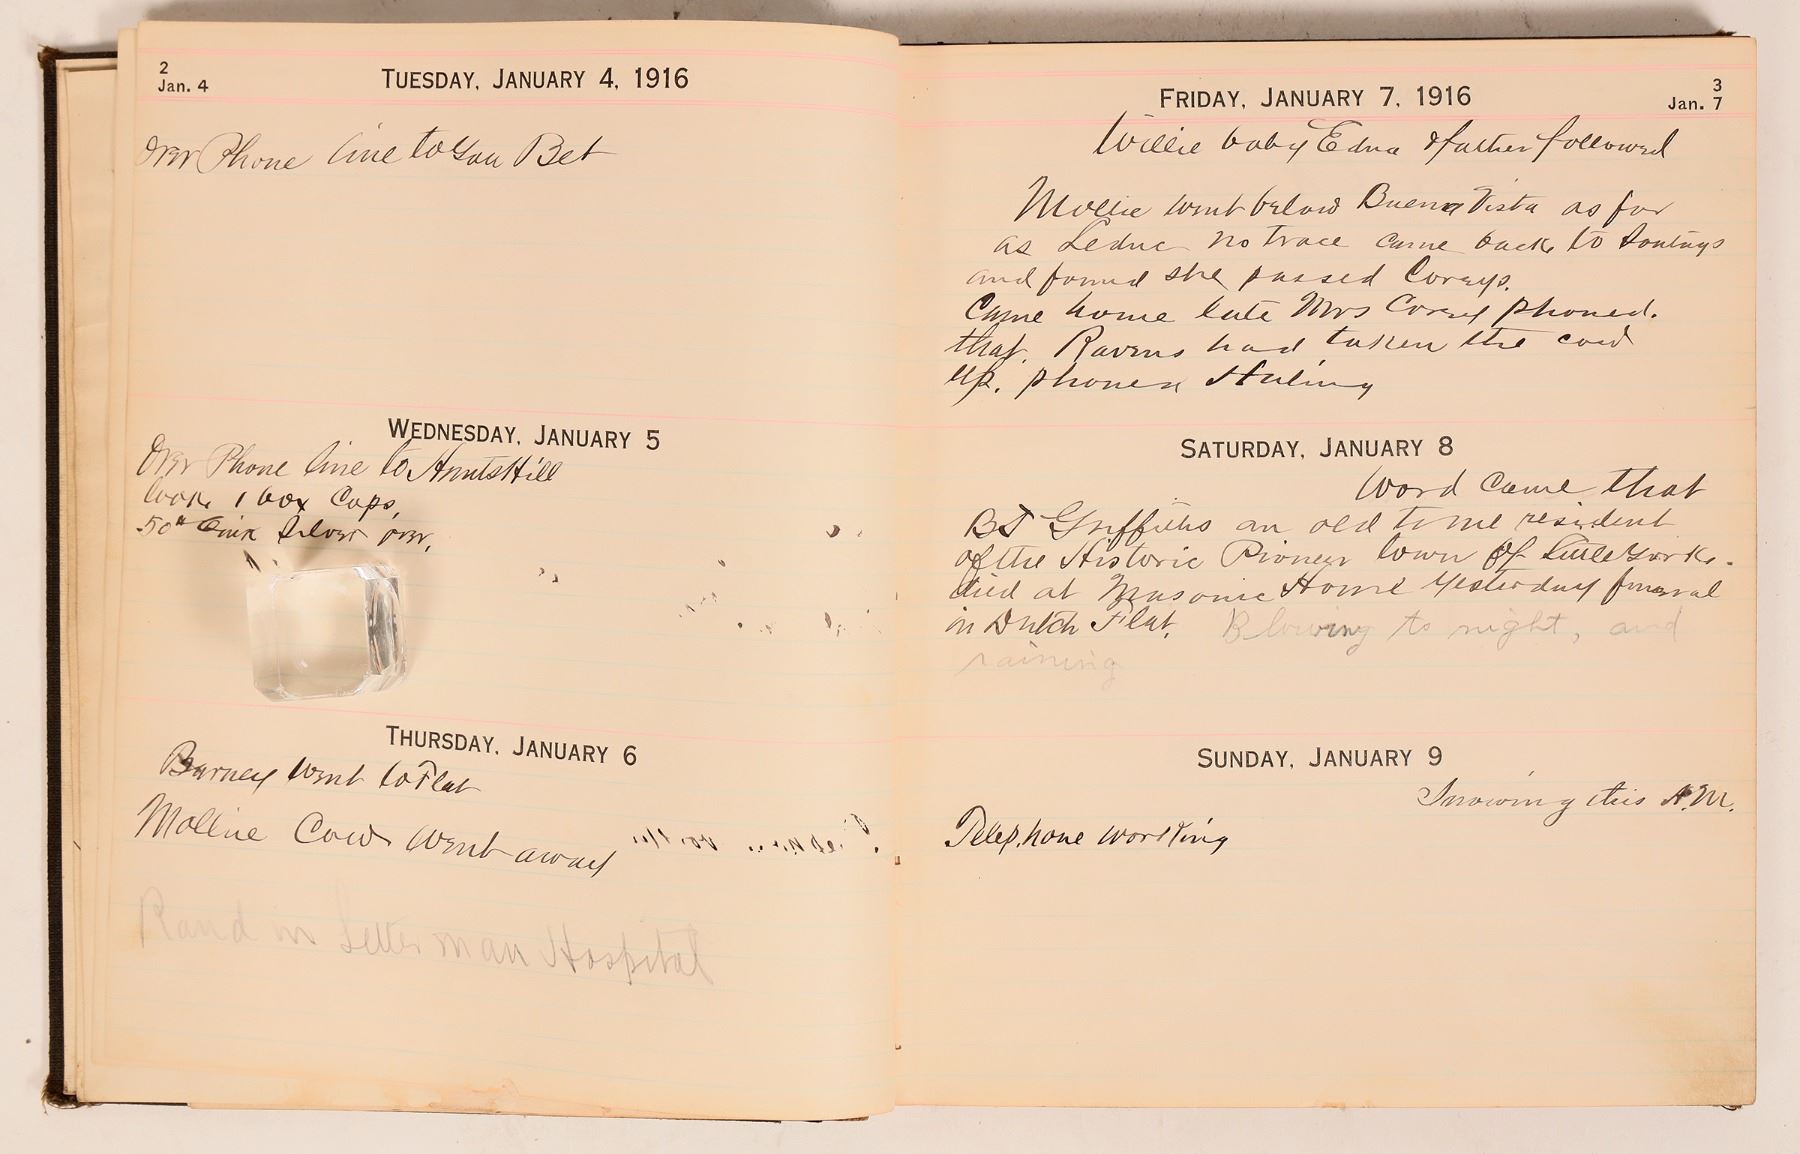 2
Jan. 4
TUESDAY, JANUARY 4, 1916
Over Phone line to You Bet
WEDNESDAY, JANUARY 5
Over Phone line to Hunts Hill
took 1 box Caps,
50# Silver over,
THURSDAY, JANUARY 6
Barney went to Flat
Mollie Cow went away
Rand in Letterman Hospital
3
Jan. 7
FRIDAY, JANUARY 7, 1916
Willie baby Edna & father followed
Mollie went below Buena Vista as far
as Leduc no trace came back to
and found she passed Coreys.
Came home late Mrs Corey phoned.
that. Ravens had taken the cow
up. phoned Huling
SATURDAY, JANUARY 8
Word came that
BJ Griffiths an old time resident
of the Historic Pioneer town of Little York.
died at Masonic Home yesterday funeral
in Dutch Flat. Blowing to night, and
raining
SUNDAY, JANUARY 9
Snowing this A.M.
Telephone working